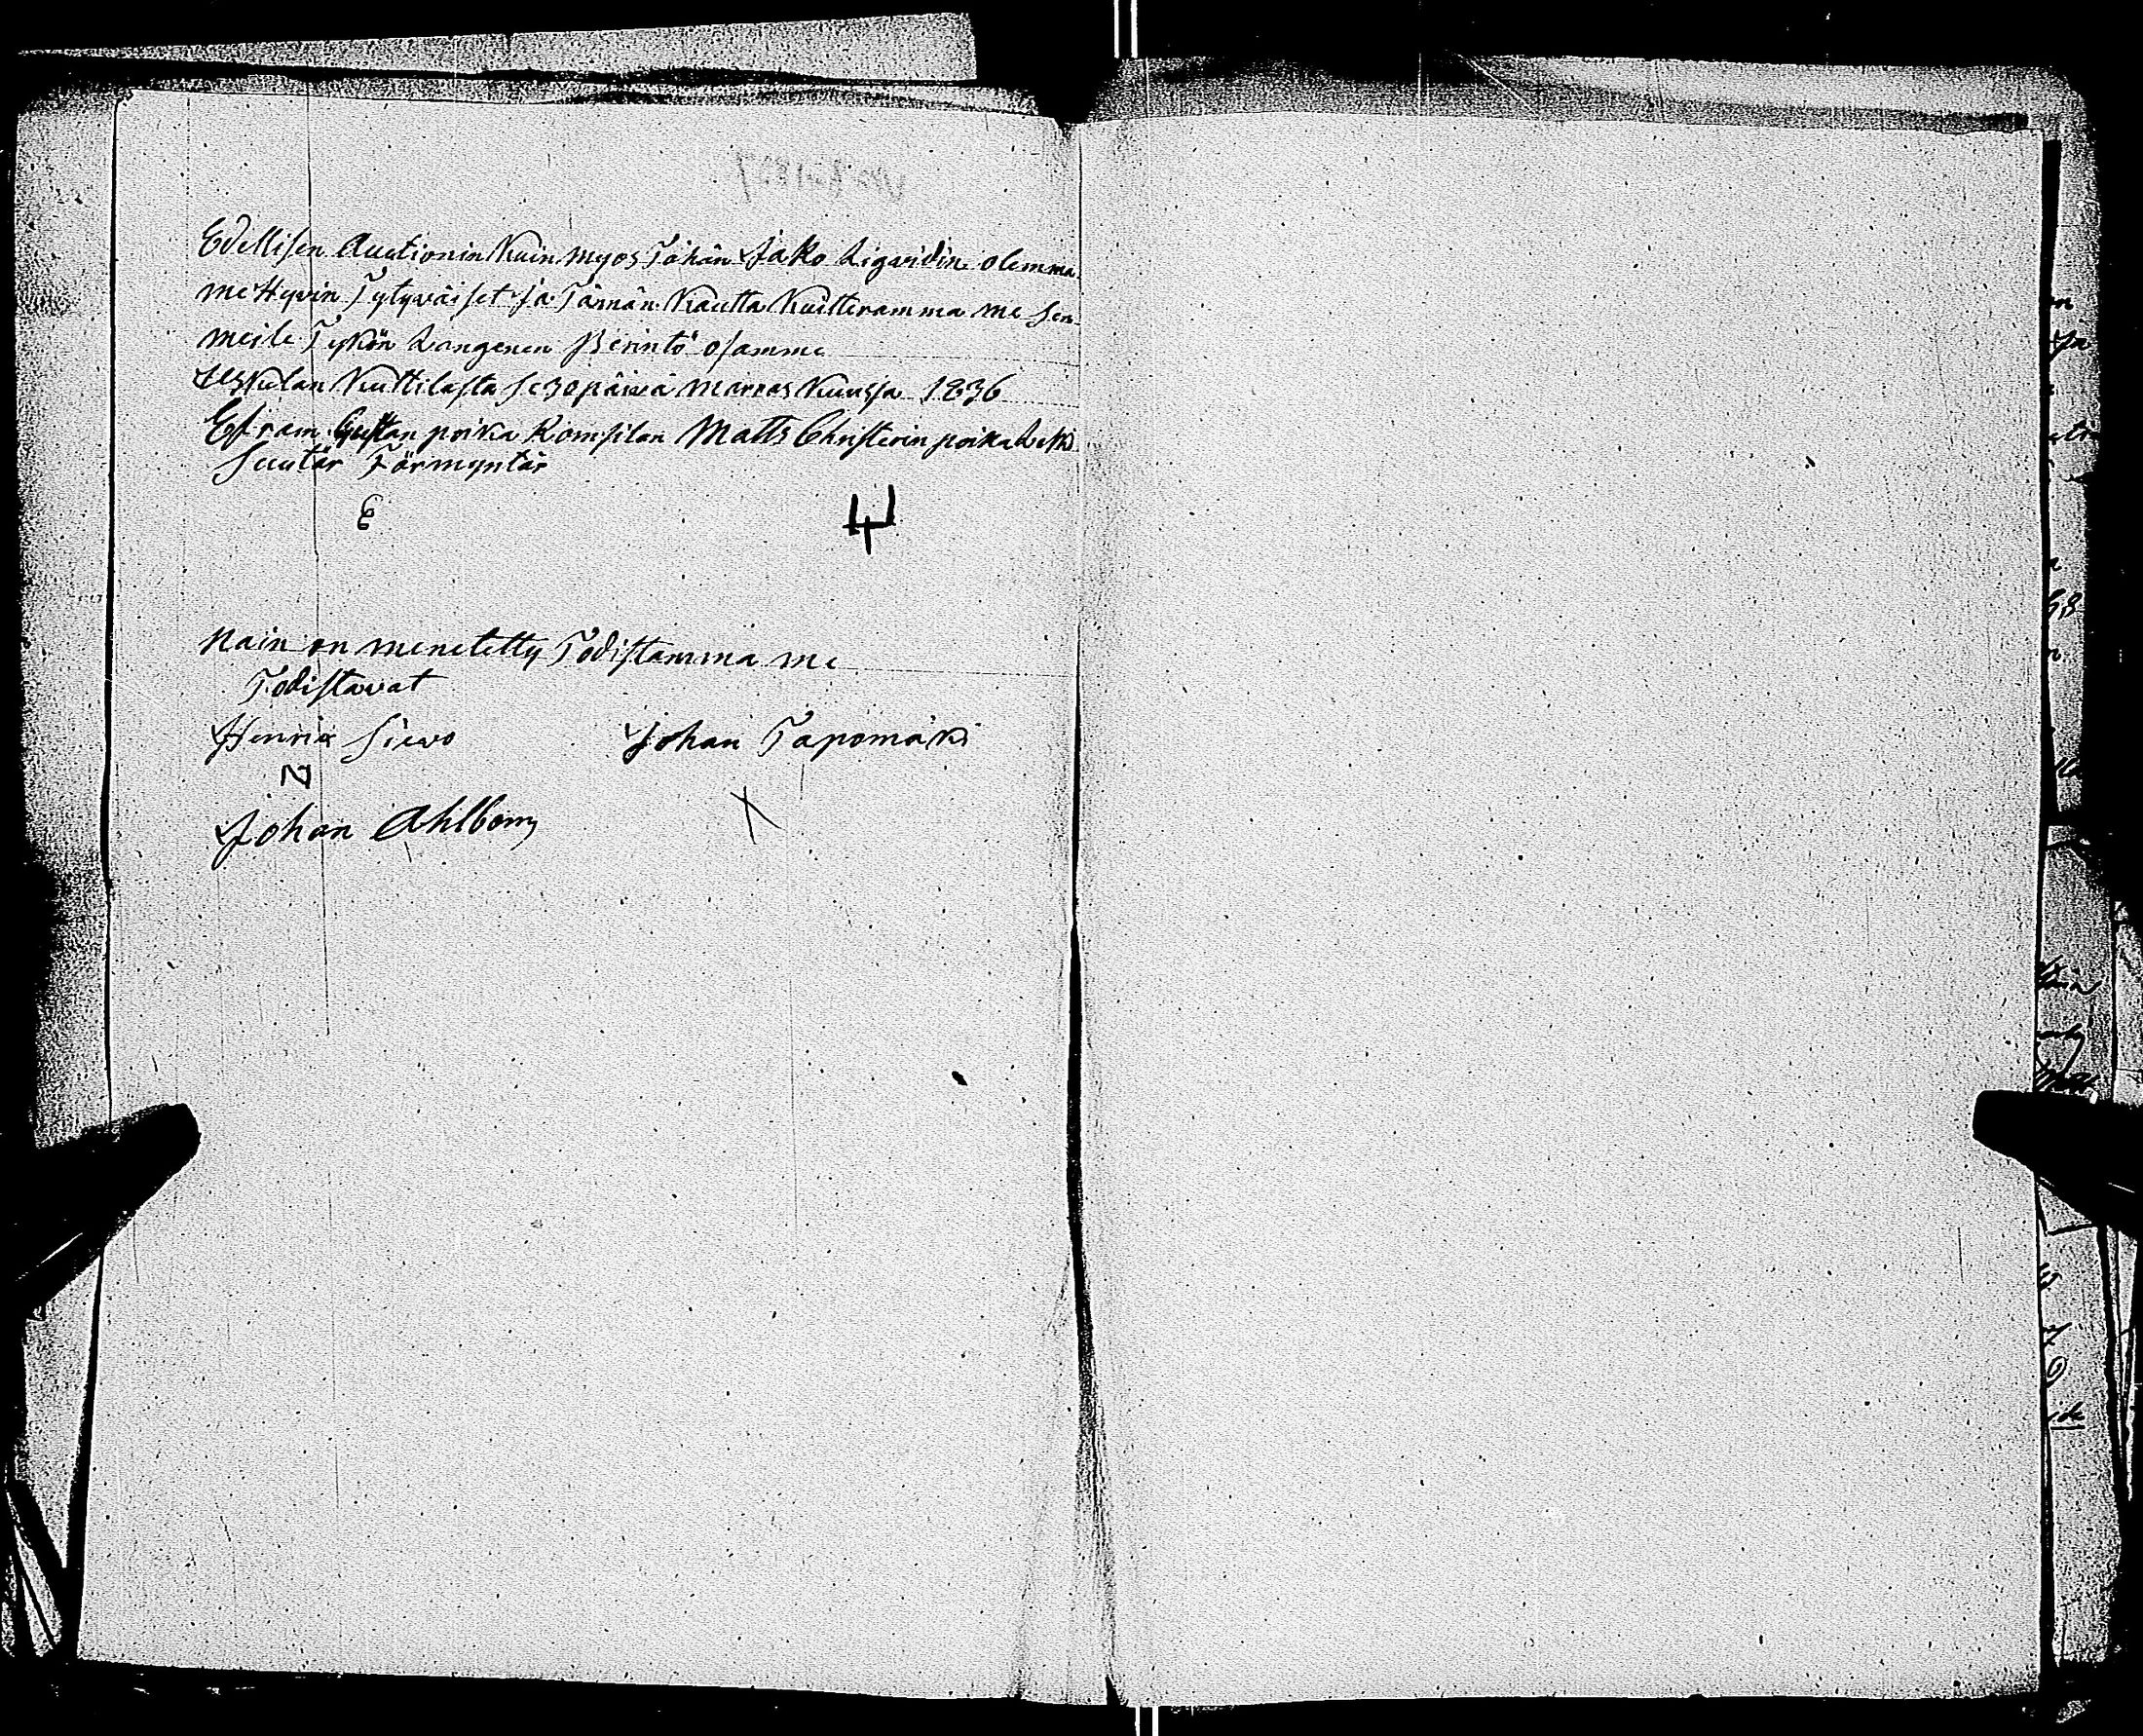 Edellisen Auctionin Kuin myös Tähän Jako Ligvidin olemma
me Hyvin Tytyväiset ja Tämän Kautta Kuitteramma me sen
meile Tykön Langenen Perintö osamme
Uskulan Kuttilasta se 30 päivä marras Kuusja 1836
Efraim Gustan poika Komsilan Matts Christerin poika
Suutár Förmyntär
E
Näin on menetetty Todistamma me
Todistavat
Henric Siewo Johan Tapomäki
Johan Ahlbom
X